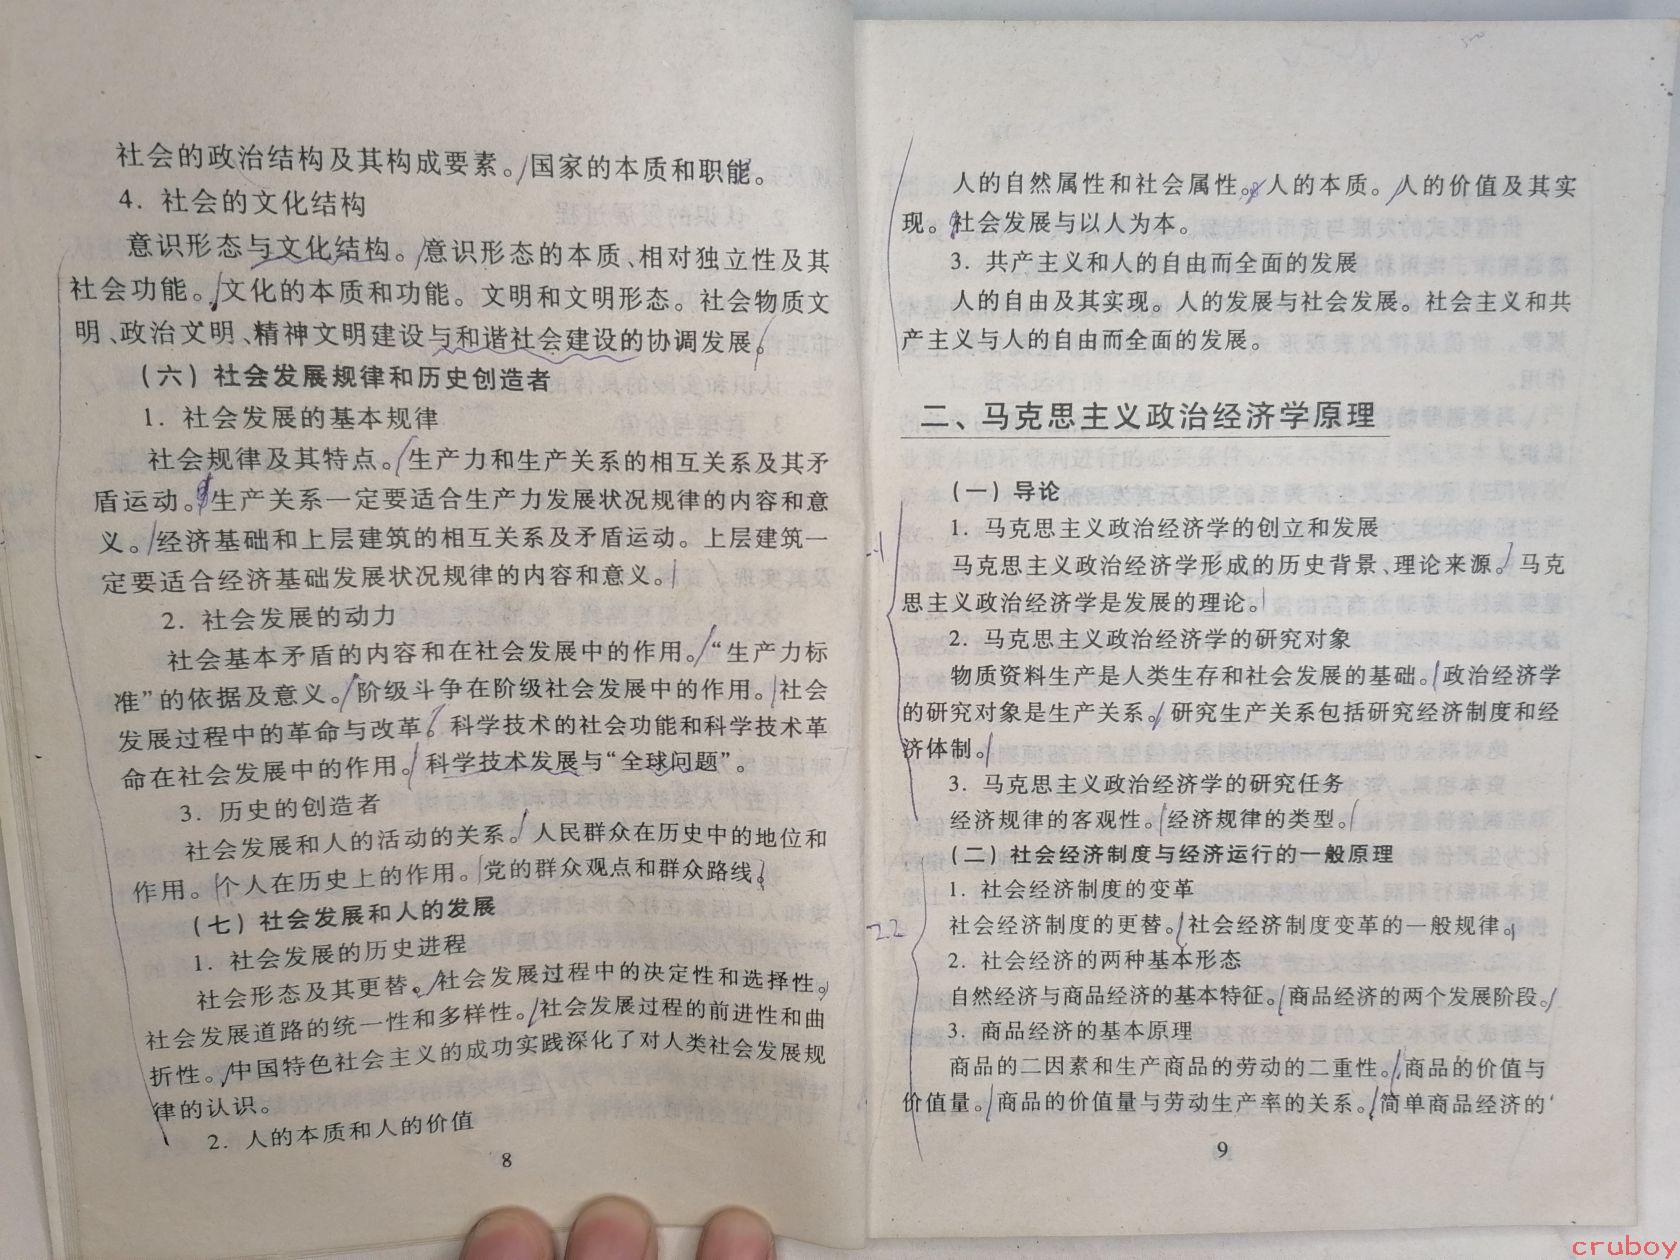 社会的政治结构及其构成要素。国家的本质和职能。
4. 社会的文化结构
意识形态与文化结构。意识形态的本质、相对独立性及其
社会功能。文化的本质和功能。文明和文明形态。社会物质文
明、政治文明、精神文明建设与和谐社会建设的协调发展。
（六）社会发展规律和历史创造者
1. 社会发展的基本规律
社会规律及其特点。生产力和生产关系的相互关系及其矛
盾运动。生产关系一定要适合生产力发展状况规律的内容和意
义。经济基础和上层建筑的相互关系及矛盾运动。上层建筑一
定要适合经济基础发展状况规律的内容和意义。
2. 社会发展的动力
社会基本矛盾的内容和在社会发展中的作用。“生产力标
准”的依据及意义。阶级斗争在阶级社会发展中的作用。社会
发展过程中的革命与改革。科学技术的社会功能和科学技术革
命在社会发展中的作用。科学技术发展与“全球问题”。
3. 历史的创造者
社会发展和人的活动的关系。人民群众在历史中的地位和
作用。个人在历史上的作用。党的群众观点和群众路线。
（七）社会发展和人的发展
1. 社会发展的历史进程
社会形态及其更替。社会发展过程中的决定性和选择性。
社会发展道路的统一性和多样性。社会发展过程的前进性和曲
折性。中国特色社会主义的成功实践深化了对人类社会发展规
律的认识。
2. 人的本质和人的价值
8
人的自然属性和社会属性。人的本质。人的价值及其实
现。社会发展与以人为本。
3. 共产主义和人的自由而全面的发展
人的自由及其实现。人的发展与社会发展。社会主义和共
产主义与人的自由而全面的发展。
二、马克思主义政治经济学原理
（一）导论
1. 马克思主义政治经济学的创立和发展
马克思主义政治经济学形成的历史背景、理论来源。马克
思主义政治经济学是发展的理论。
2. 马克思主义政治经济学的研究对象
物质资料生产是人类生存和社会发展的基础。政治经济学
的研究对象是生产关系。研究生产关系包括研究经济制度和经
济体制。
3. 马克思主义政治经济学的研究任务
经济规律的客观性。经济规律的类型。
（二）社会经济制度与经济运行的一般原理
1. 社会经济制度的变革
社会经济制度的更替。社会经济制度变革的一般规律。
22
2. 社会经济的两种基本形态
自然经济与商品经济的基本特征。商品经济的两个发展阶段。
3. 商品经济的基本原理
商品的二因素和生产商品的劳动的二重性。商品的价值与
价值量。商品的价值量与劳动生产率的关系。简单商品经济的
9
cruboy